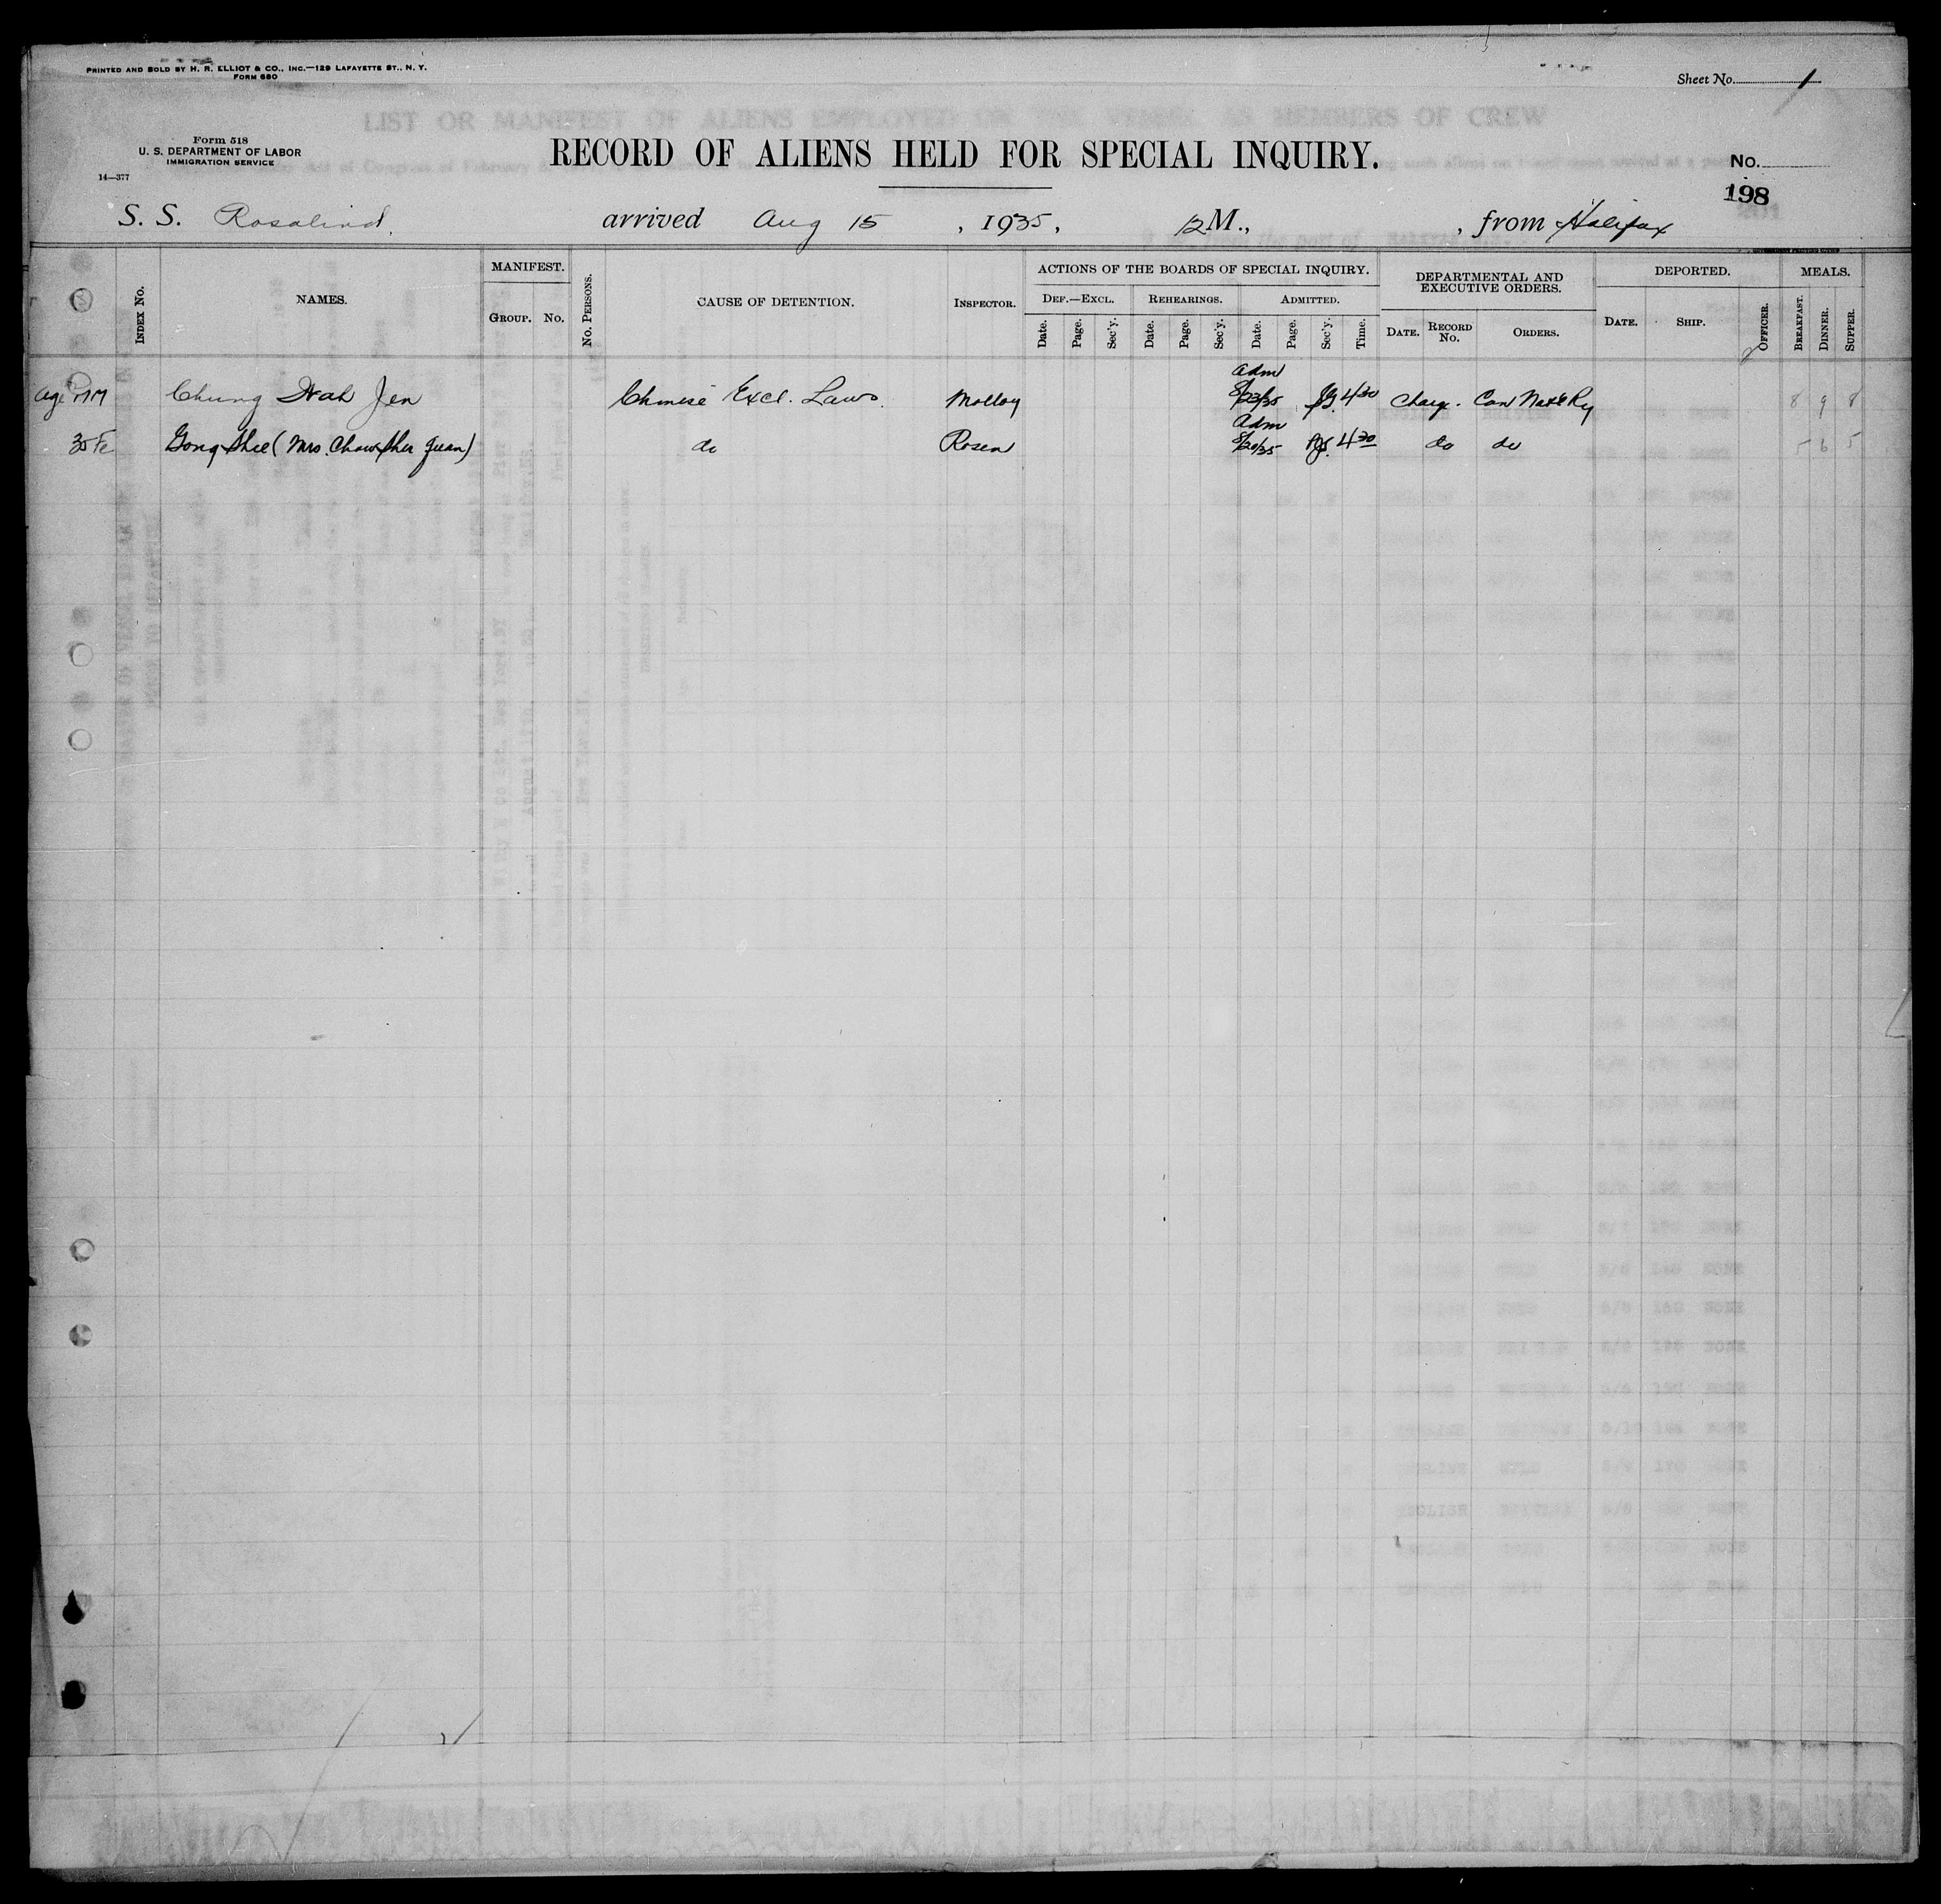 PRINTED AND SOLD BY H. R. ELLIOT & CO., INC.—129 LAFAYETTE ST., N. Y.
FORM 680
Sheet No. 1
LIST OR MANIFEST OF ALIENS EMPLOYED ON THE VESSEL AS MEMBERS OF CREW
Form 518
U. S. DEPARTMENT OF LABOR
IMMIGRATION SERVICE
14—377
RECORD OF ALIENS HELD FOR SPECIAL INQUIRY.
No.
198
S. S. Rosalind. arrived Aug 15, 1935, 12 M., , from Halifax
INDEX No. NAMES. MANIFEST. GROUP. No. No. PERSONS. CAUSE OF DETENTION. INSPECTOR. ACTIONS OF THE BOARDS OF SPECIAL INQUIRY. DEF.—EXCL. Date. Page. Sec'y. REHEARINGS. Date. Page. Sec'y. ADMITTED. Date. Page. Sec'y. Time. DEPARTMENTAL AND EXECUTIVE ORDERS. DATE. RECORD No. ORDERS. DEPORTED. DATE. SHIP. OFFICER. MEALS. BREAKFAST. DINNER. SUPPER.
Adm
Age M Chung Wah Jen Chinese Excl. Laws. Molloy 8/23/35 4 30 Charge. Can Natl Ry 8 9 8
Adm
35 Fe Gong Shee (Mrs. Chow Sher Yuen) do Rosen 8/20/35 4 30 do do 5 6 5